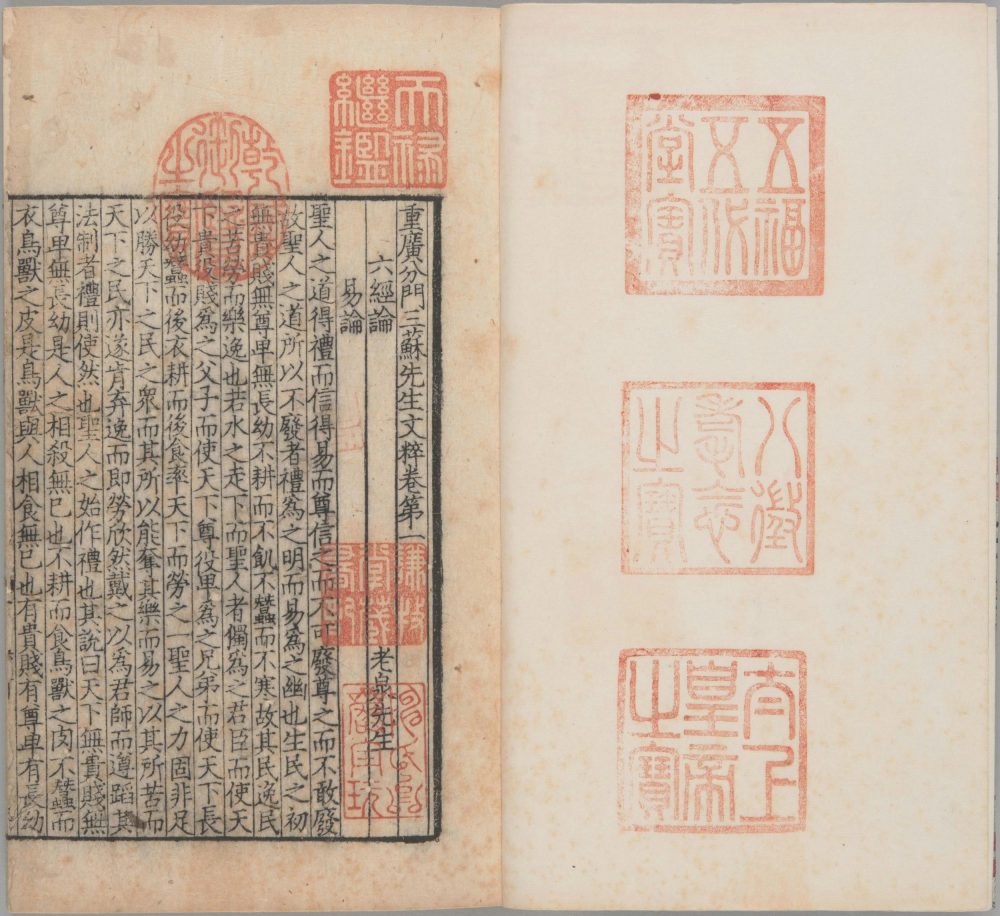 五福
五代
堂寶
八徵
耄念
之寶
太上
皇帝
之寶
天祿
繼鑑
乾隆
御覽
之寶
重廣分門三蘇先生文粹卷第一
六經論
老泉先生
易論
聖人之道得禮而信得易而尊信之而不可廢尊之而不敢廢
故聖人之道所以不廢者禮爲之明而易爲之幽也生民之初
無貴賤無尊卑無長幼不耕而不飢不蠶而不寒故其民逸民
之苦勞而樂逸也若水之走下而聖人者獨爲之君臣而使天
下貴役賤爲之父子而使天下尊役卑爲之兄弟而使天下長
役幼蠶而後衣耕而後食率天下而勞之一聖人之力固非足
以勝天下之民之衆而其所以能奪其樂而易之以其所苦而
天下之民亦遂肯弃逸而即勞欣然戴之以爲君師而遵蹈其
法制者禮則使然也聖人之始作禮也其說曰天下無貴賤無
尊卑無長幼是人之相殺無已也不耕而食鳥獸之肉不蠶而
衣鳥獸之皮是鳥獸與人相食無已也有貴賤有尊卑有長幼
謙牧
堂藏
書記